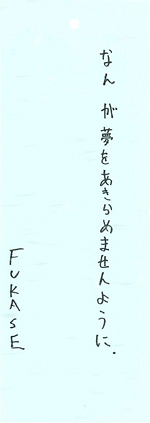 なん が夢をあきらめませんように.
FUKASE